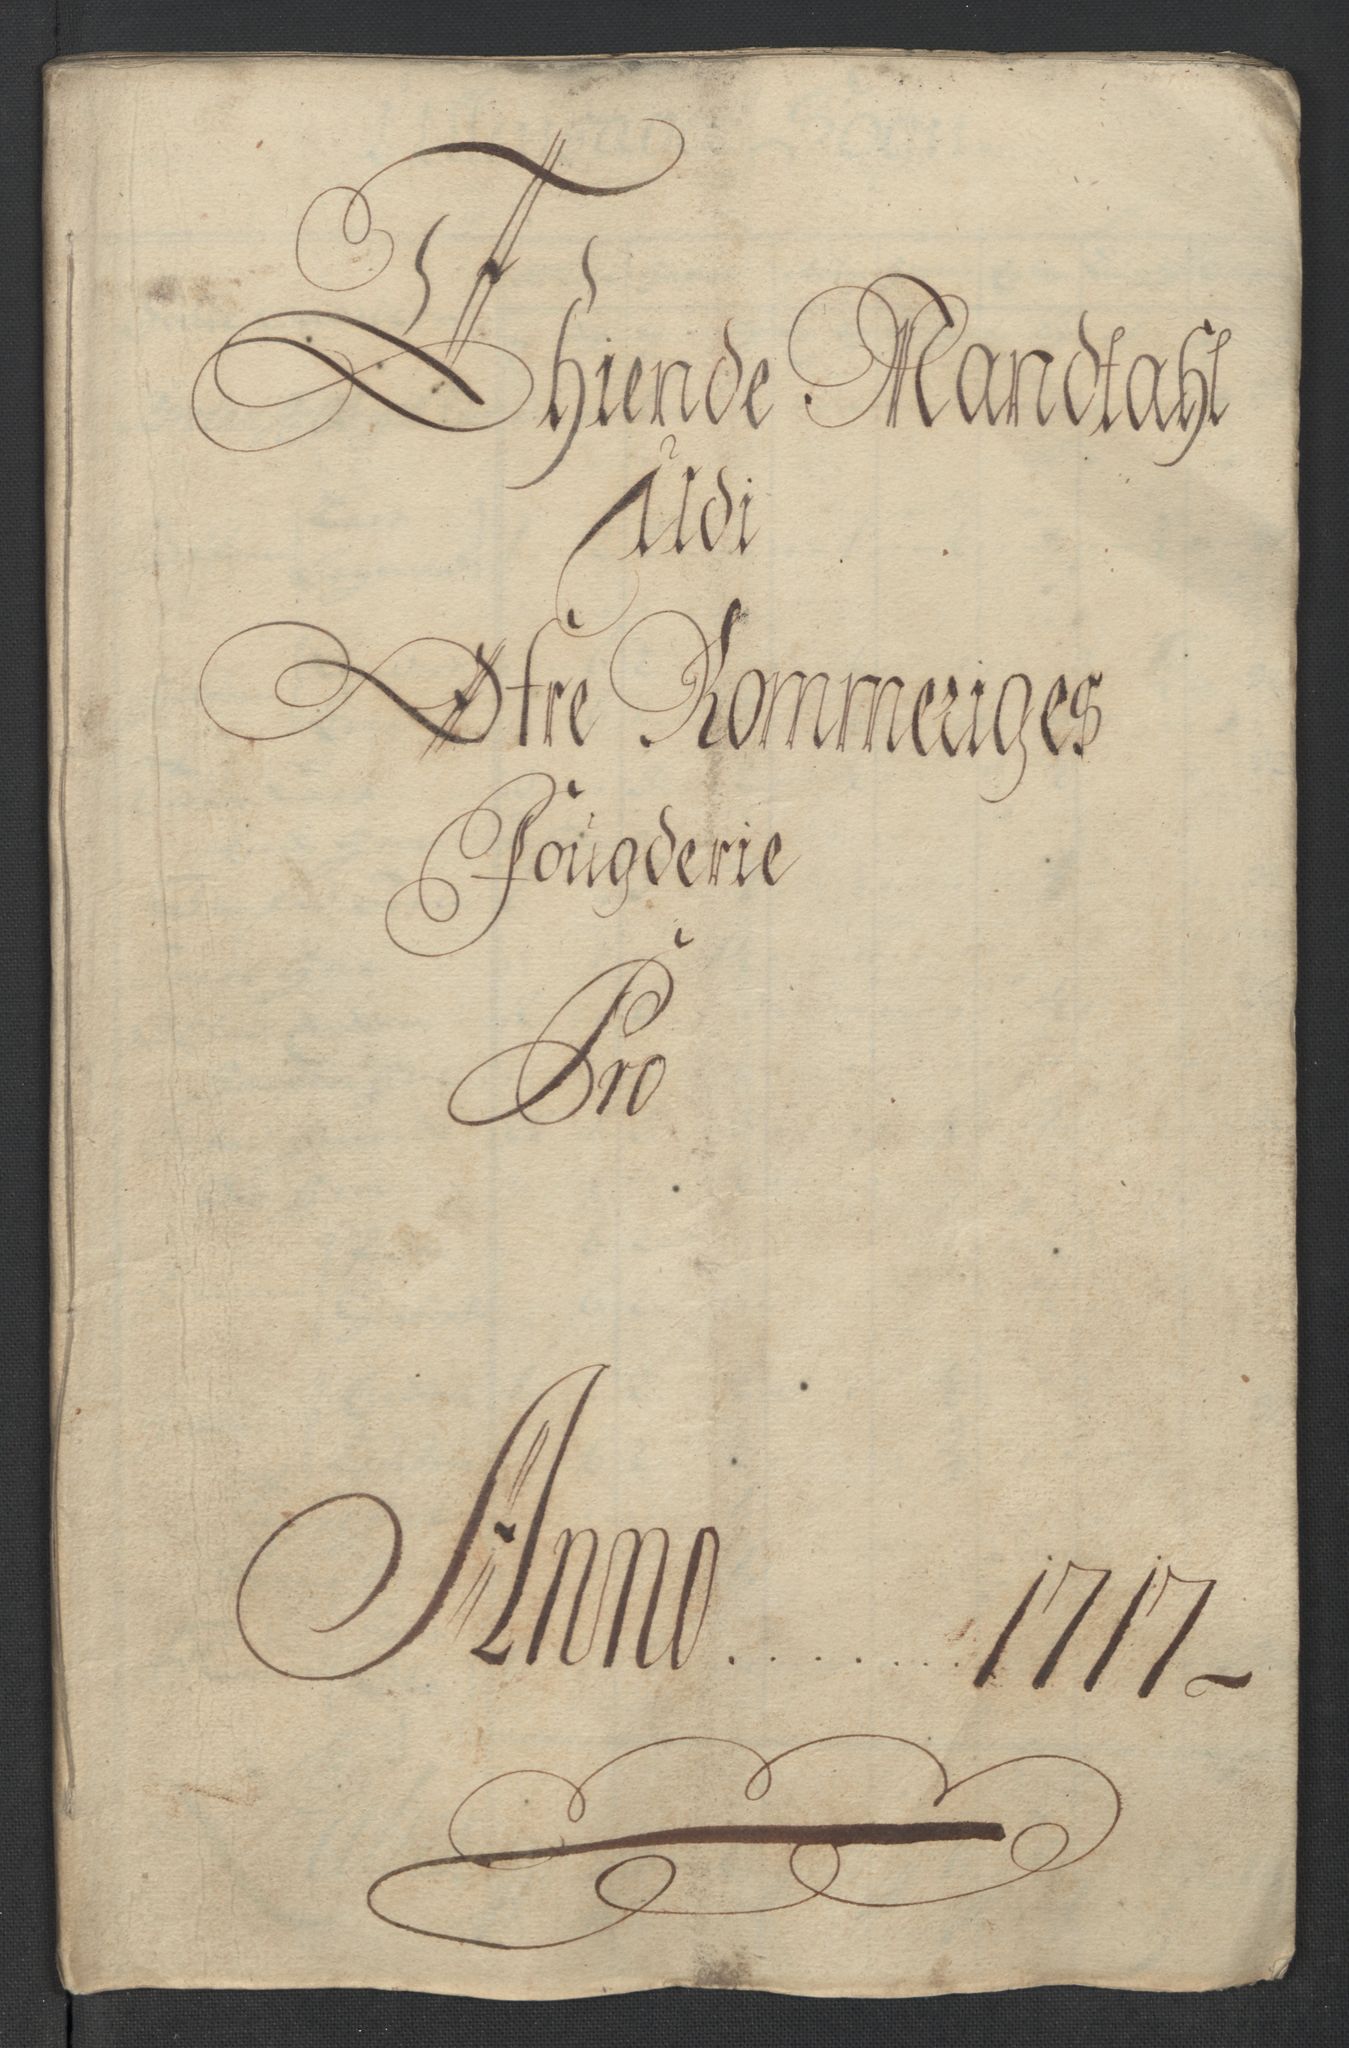 Thiende Mandtahl
Udi
Øfre Rommeriges
Fougderie
Pro
Anno ........ 1717